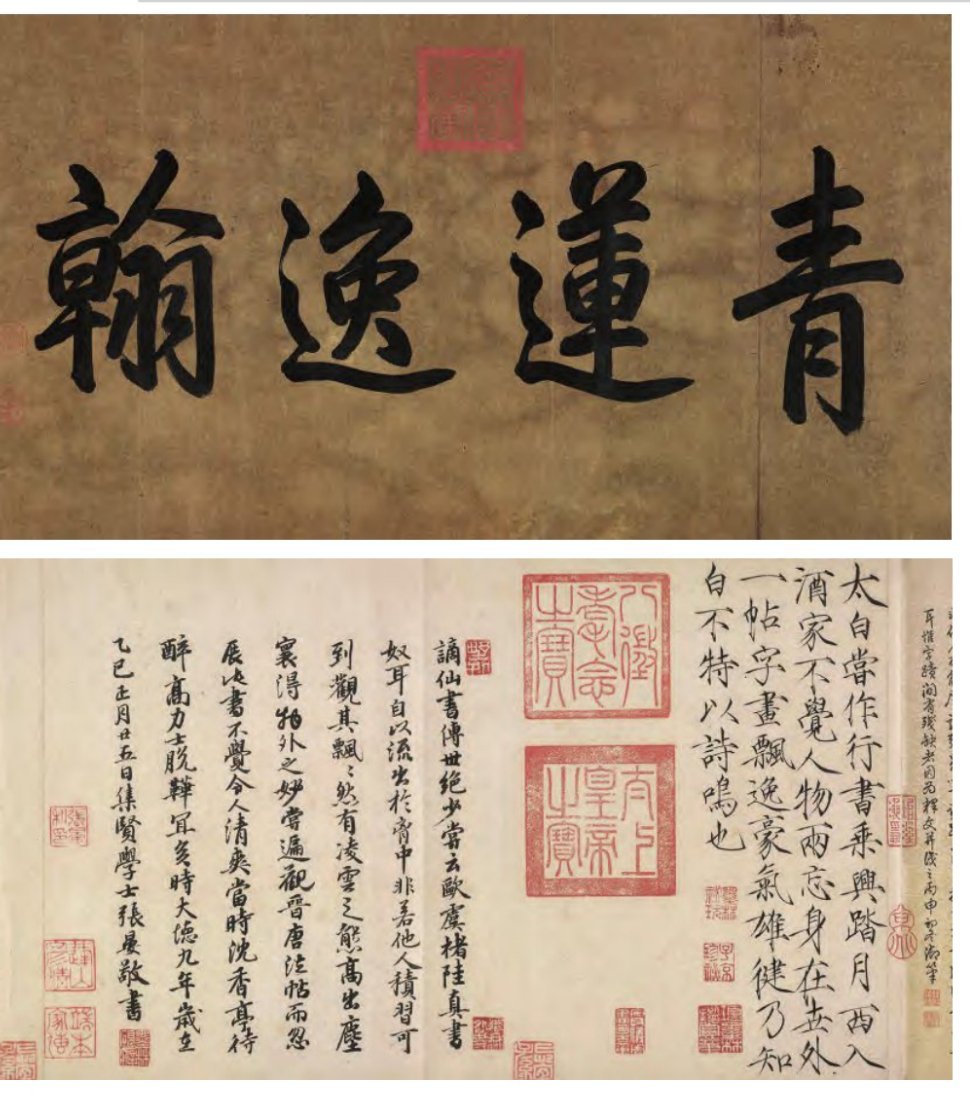 青蓮逸翰
耳惟字蹟間有殘缺因為釋文并識之丙申初冬御筆
太白嘗作行書乘興踏月西入
酒家不覺人物兩忘身在世外
一帖字畫飄逸豪氣雄健乃知
白不特以詩鳴也
八徵
耄念
之寶
太上
皇帝
之寶
謫仙書傳世絕少嘗云歐虞褚陸真書
奴耳自以流出於胷中非若他人積習可
到觀其飄〻然有凌雲之態高出塵
寰得物外之妙嘗遍觀晉唐法帖而忽
展此書不覺令人清爽當時沈香亭待
醉高力士脫鞾宜矣時大德九年歲在
乙巳正月廿五日集賢學士張晏敬書